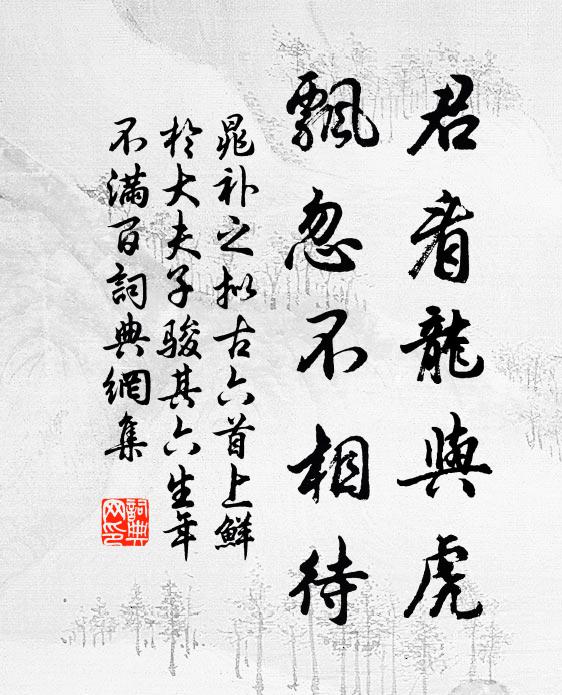 君看龍與虎
飄忽不相待
晁补之拟古六首上鮮
於大夫子骏其六生年
不满百詞典網集
詞典
网印